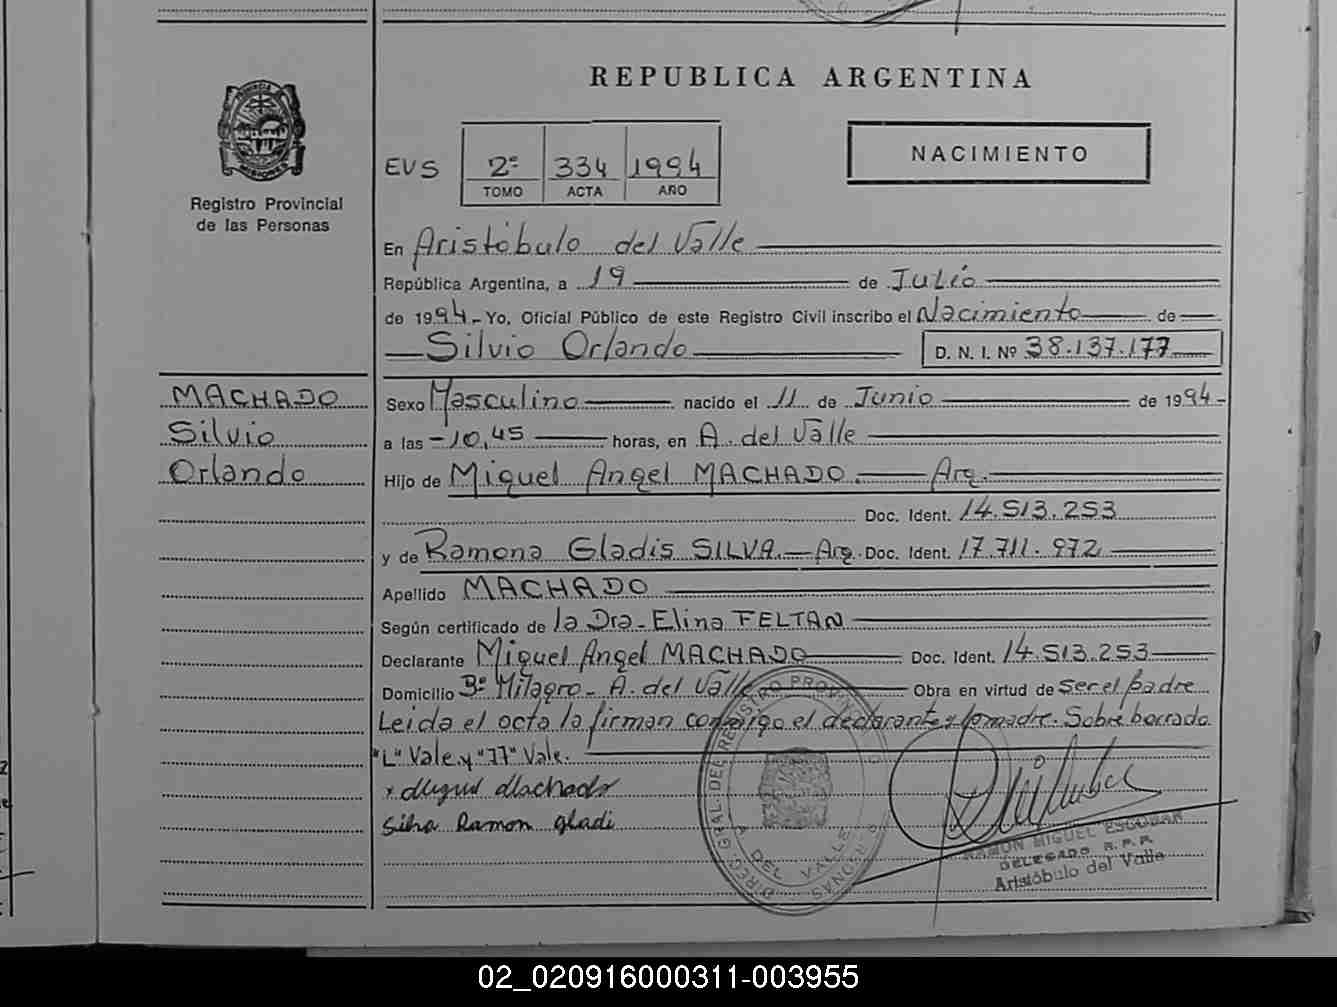 REPUBLICA ARGENTINA
PROVINCIA DE
MISIONES
Registro Provincial
de las Personas
EVS 2º 334 1994
TOMO ACTA AÑO
NACIMIENTO
En Aristóbulo del Valle
República Argentina, a 19 de Julio
de 1994.- Yo, Oficial Público de este Registro Civil inscribo el Nacimiento de
Silvio Orlando D. N. I. Nº 38.137.177
MACHADO
Silvio
Orlando
Sexo Masculino nacido el 11 de Junio de 1994-
a las -10,45 horas, en A. del Valle
Hijo de Miguel Angel MACHADO.- Arg.
Doc. Ident. 14.513.253
y de Ramona Gladis SILVA.- Arg. Doc. Ident. 17.711.972
Apellido MACHADO
Según certificado de la Dra- Elina FELTAN
Declarante Miguel Angel MACHADO Doc. Ident. 14.513.253
Domicilio Bº Milagro- A. del Valle Obra en virtud de ser el padre
Leida el acta la firman conmigo el declarante y la madre. Sobre borrado
"L" Vale y "77" Vale.
x Miguel Machado
Silva Ramon gladi
DIREC. GRAL. DEL REGISTRO PROVIN PERSONAS
A. DEL VALLE
RAMON MIGUEL ESCOBAR
DELEGADO R.P.P.
Aristóbulo del Valle
02_020916000311-003955